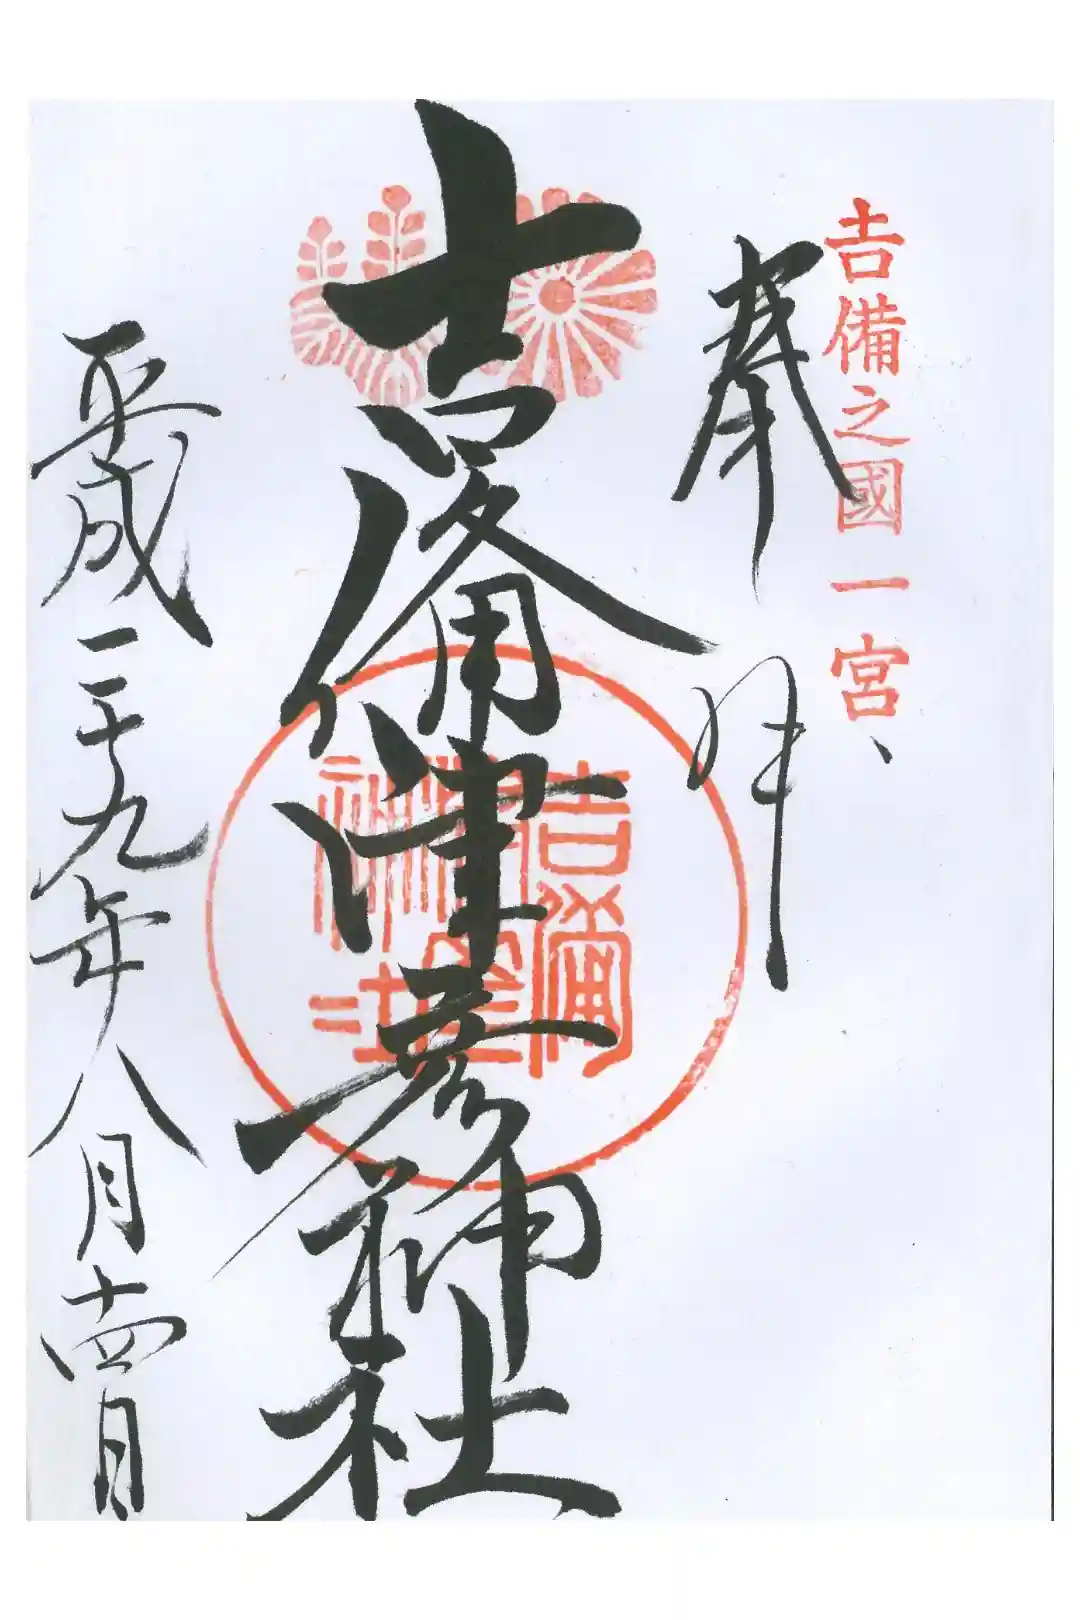 吉備之國一宮
奉拝
吉備津彦神社
平成二十九年八月十四日